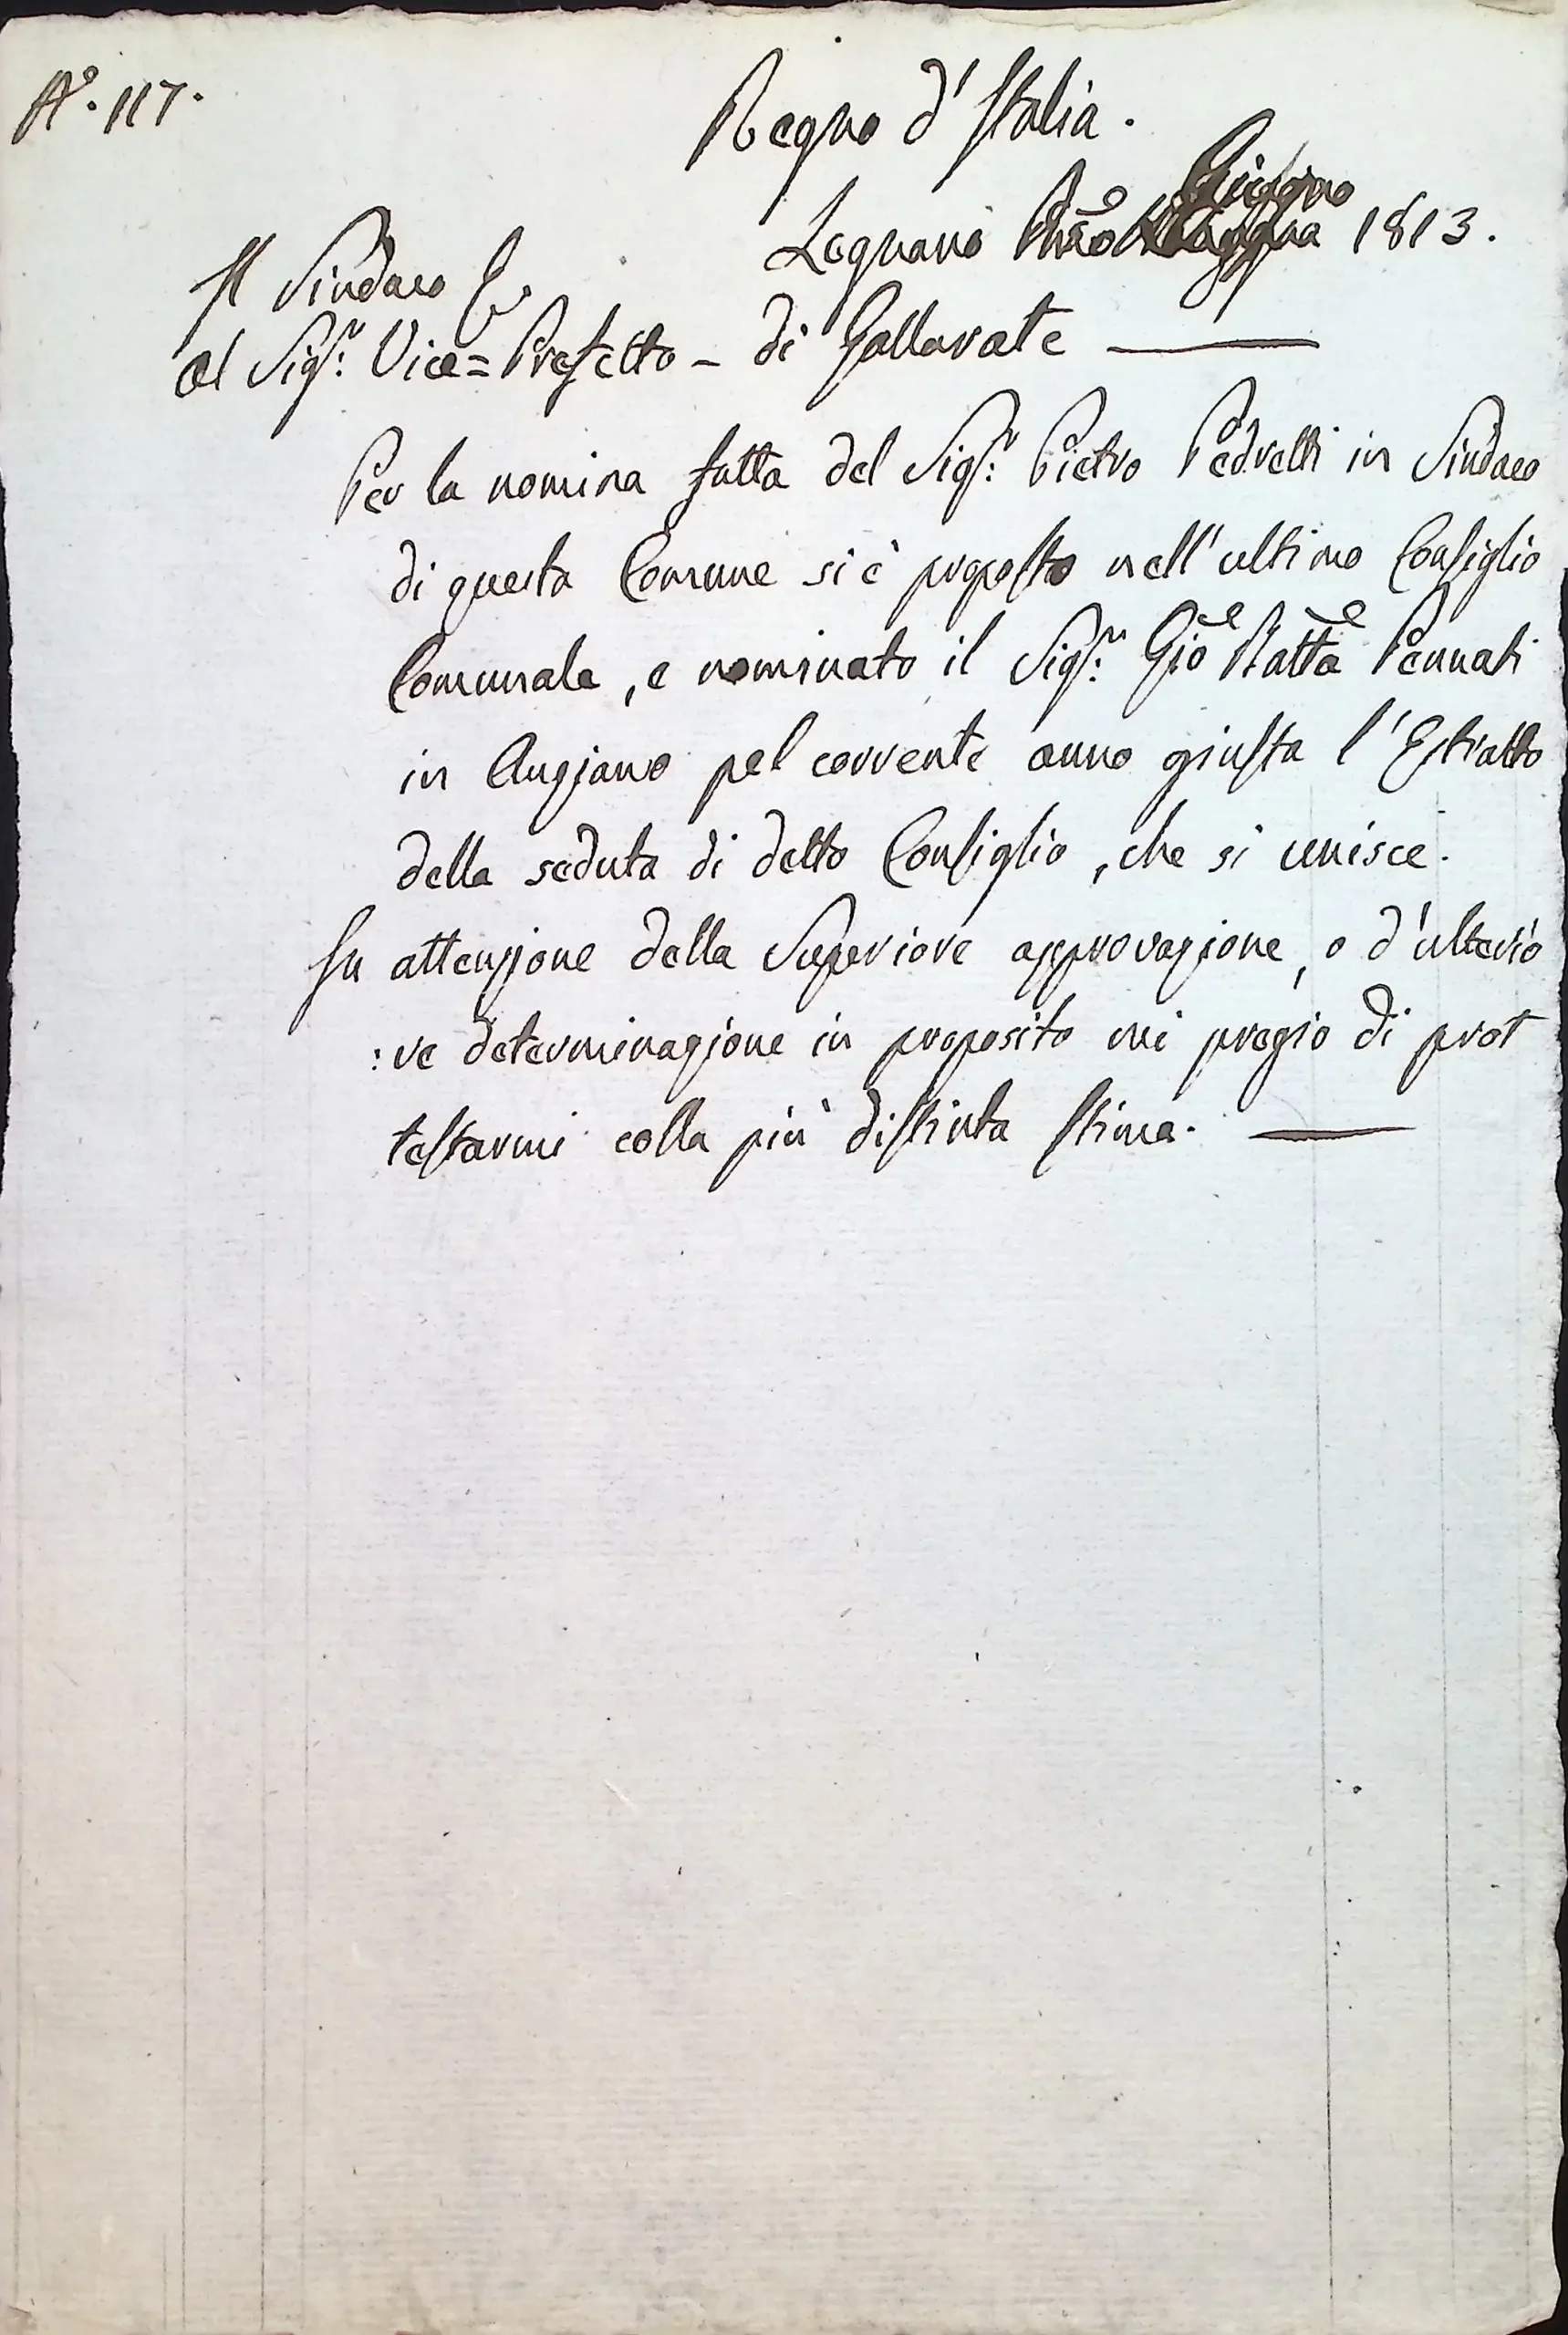 N.° 117.
Regno d'Italia.
Giugno
Legnano Pmo 1813.
Il Sindaco
Al Sigr. Vice=Prefetto - di Gallarate
Per la nomina fatta del Sigr. Pietro Pedretti in Sindaco
di questa Comune si è proposto nell'ultimo Consiglio
Comunale, e nominato il Sigr. Gio Batta Pennati
in Anziano pel corrente anno giusta l'Estratto
della seduta di detto Consiglio, che si unisce.
In attenzione della Superiore approvazione, o d'ulterio
:re determinazione in proposito mi pregio di prot
testarmi colla più distinta stima.